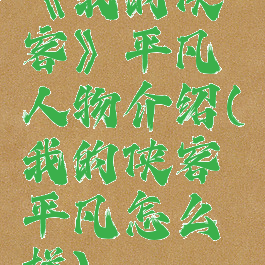 《我的侠
客》平凡
人物介绍(
我的侠客
平凡怎么
样)